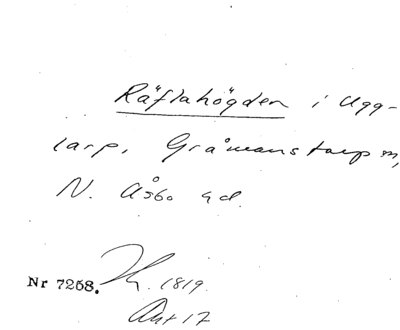 Räflahögden i Ugg-
larp, Gråmanstorp
N. Åsbo hd.
Nr 7268. 1819.
Akt 17